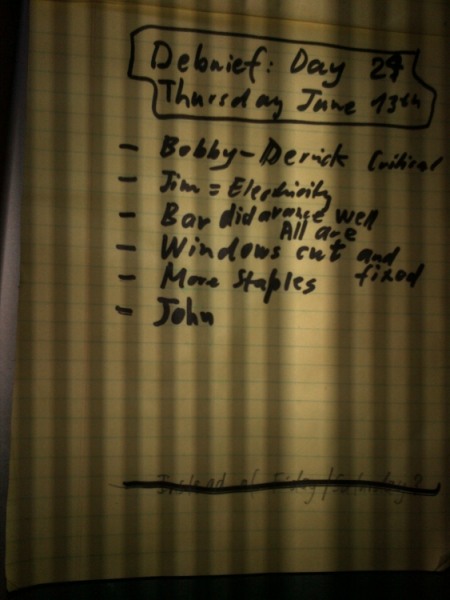 Debrief: Day 29
Thursday June 13th
- Bobby-Derrick Critical
- Jim = Electricity
- Bar did arange well
All are
- Windows cut and
fixed
- More Staples
- John
Instead of Friday/Saturday?